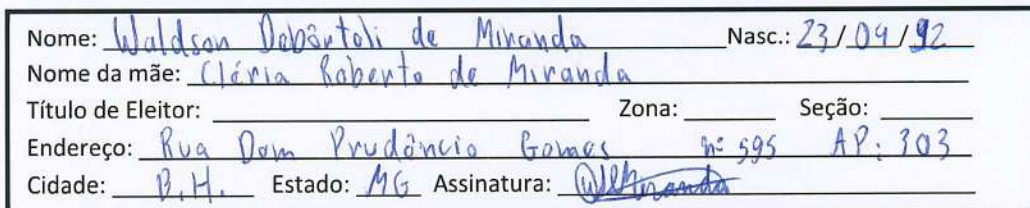 Nome: Waldson Debôrtoli de Miranda Nasc.: 23/09/92
Nome da mãe: Cléria Roberto de Miranda
Título de Eleitor: Zona: Seção:
Endereço: Rua Dom Prudêncio Gomes nº 595 AP: 303
Cidade: B.H. Estado: MG Assinatura: WDMiranda